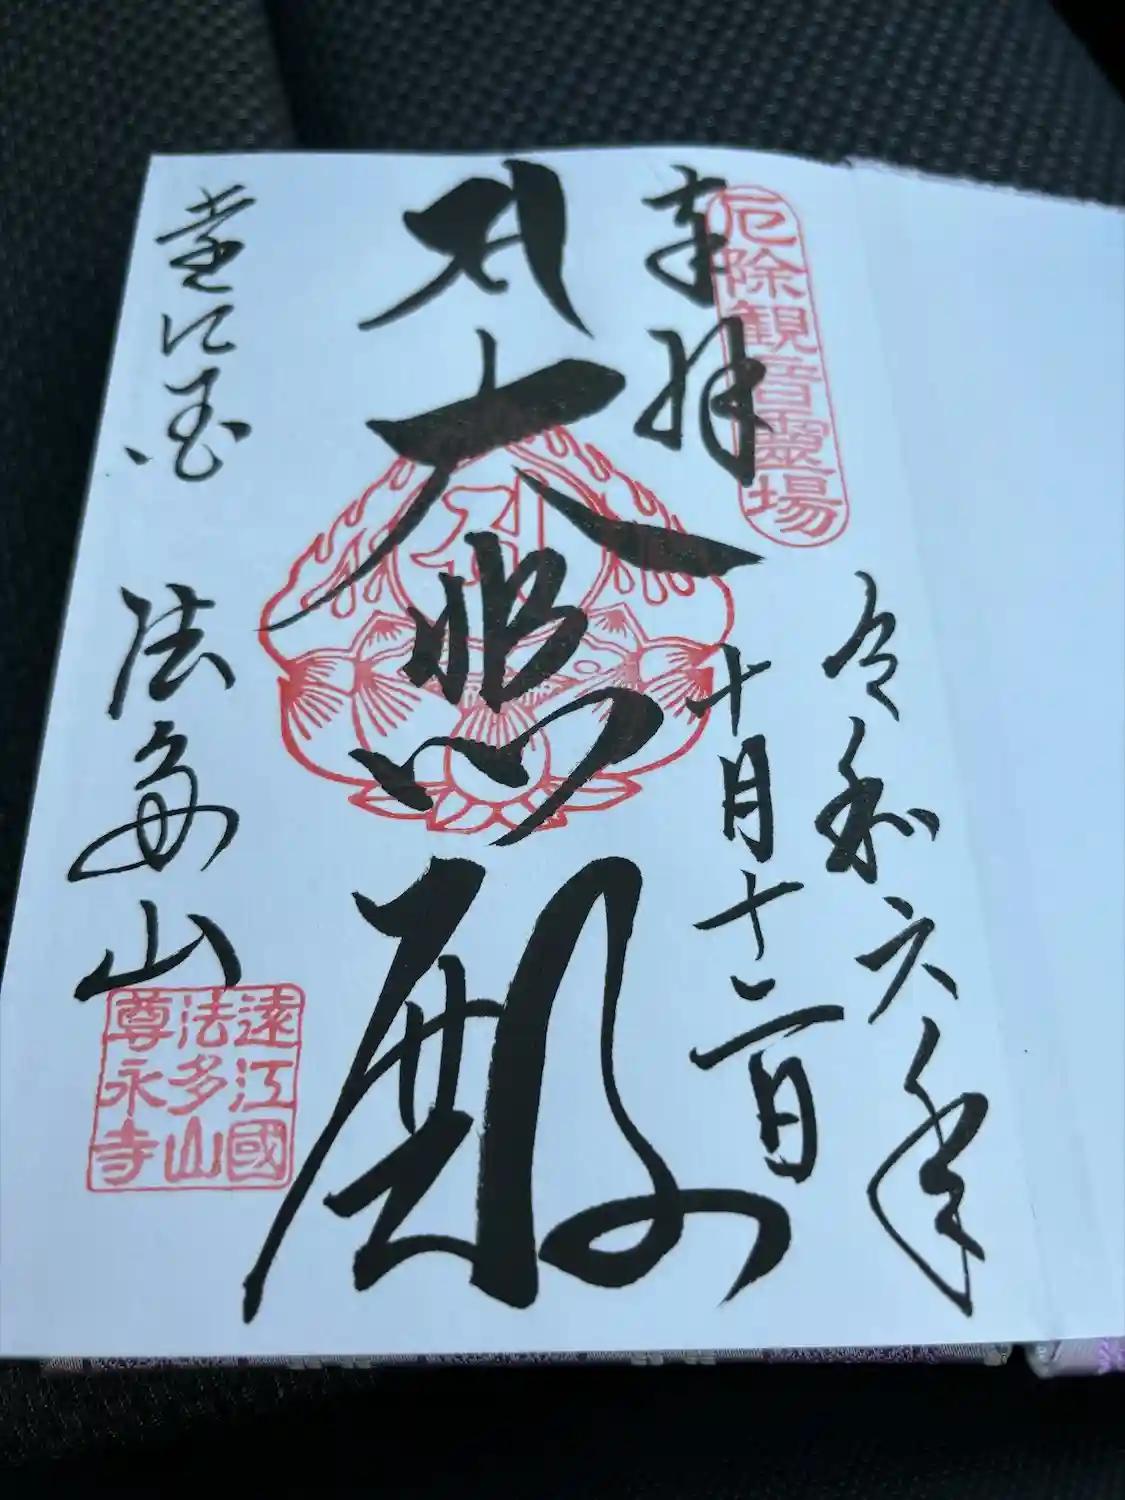 厄除観音霊場
奉拝
令和六年
十月十二日
大悲殿
遠江国
法多山
遠江國
法多山
尊永寺